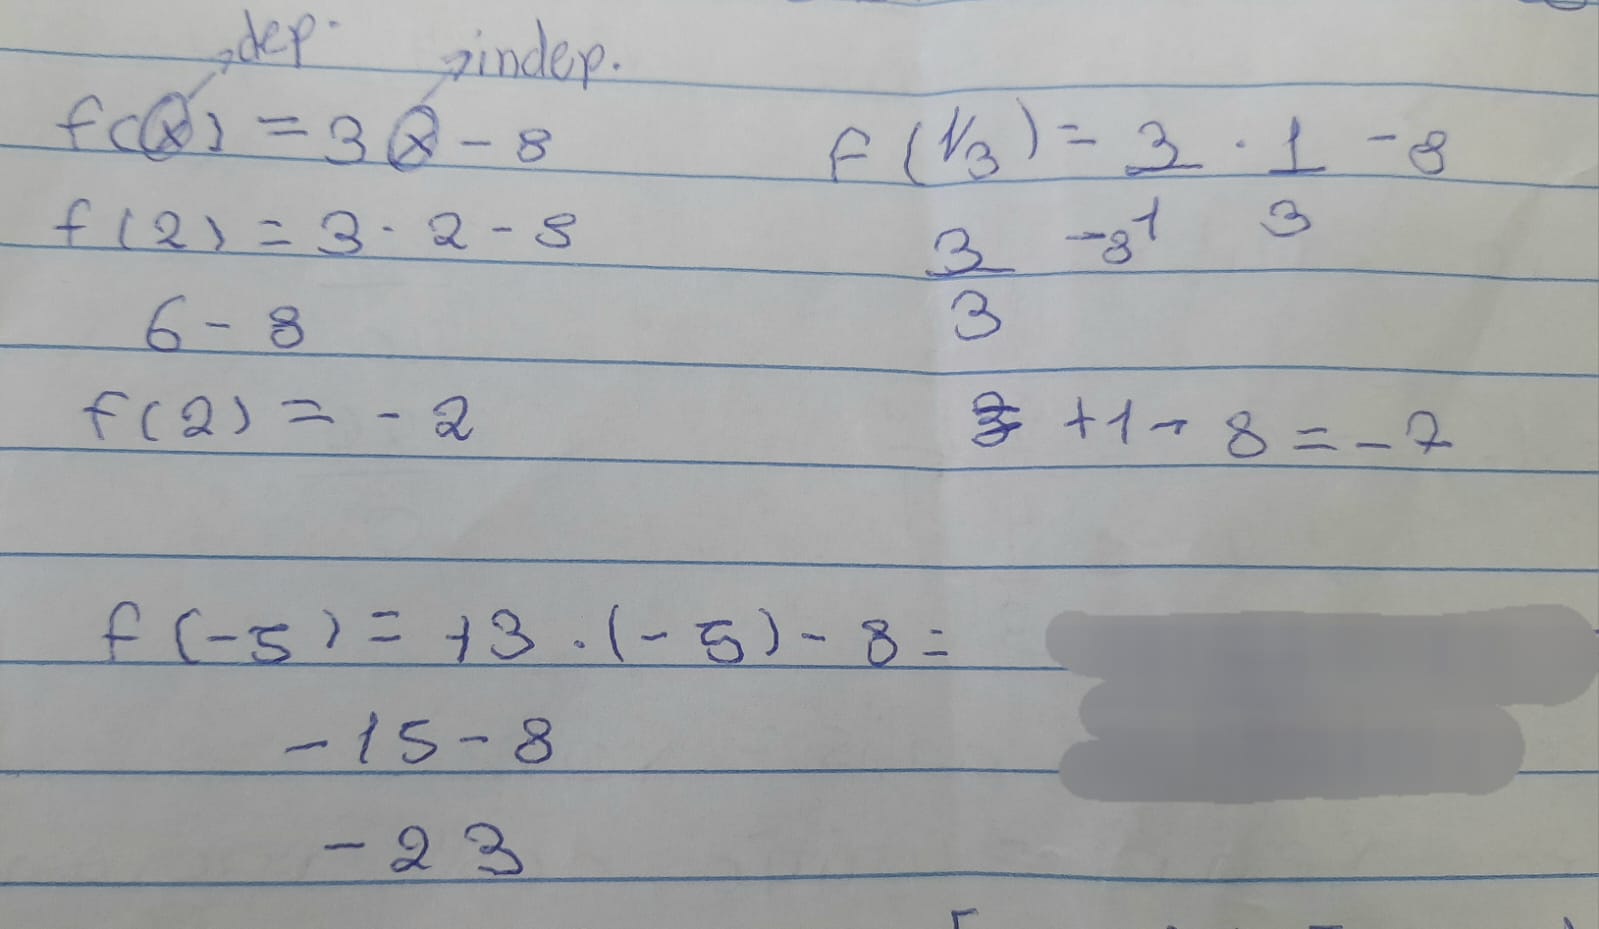 dep. indep.
f(x) = 3x - 8
f(2) = 3 · 2 - 8
6 - 8
f(2) = - 2
f(1/3) = 3 · 1 - 8
3 -8 1 3
3
+1 - 8 = - 7
f(-5) = +3 · (-5) - 8 =
-15 - 8
-23